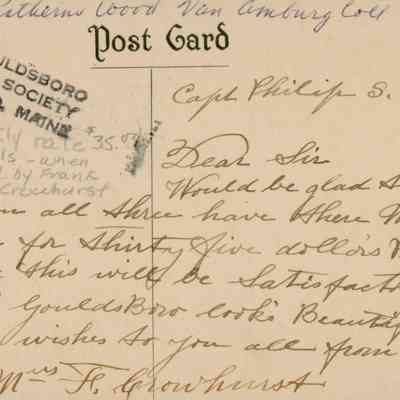 Catherns Wood Van Amburg Coll
Post Card
ULDSBORO
SOCIETY
, MAINE
ly rate $35.00
ls - when
by Frank
Crowhurst
Capt Philip S.
Dear Sir
Would be glad
all three have there
for thirty five dollors
this will be Satisfacto
GouldsBoro look's Beautif
wishes to you all from
Mrs F. Crowhurst